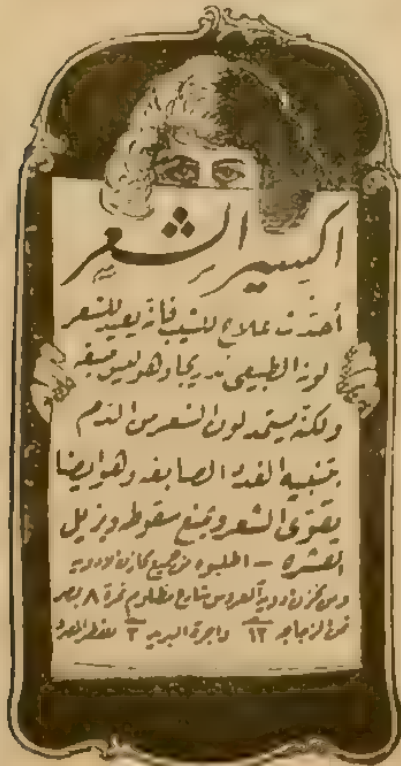 اكسير الشعر
أحدث علاج للشيب فانه يعيد للشعر
لونه الطبيعى تدريجا وهو ليس صبغه
ولكنه يستمد لون الشعر من الدم
بتنبيه الغدد الصابغه وهو ايضا
يقوى الشعر ويمنع سقوطه ويزيل
القشره - اطلبوه من جميع مخازن الادويه
ومن مخزن ادوية العروس شارع مظلوم نمرة ٨ بمصر
ثمن الزجاجه ١٢ واجرة البريد ٣ للقطر